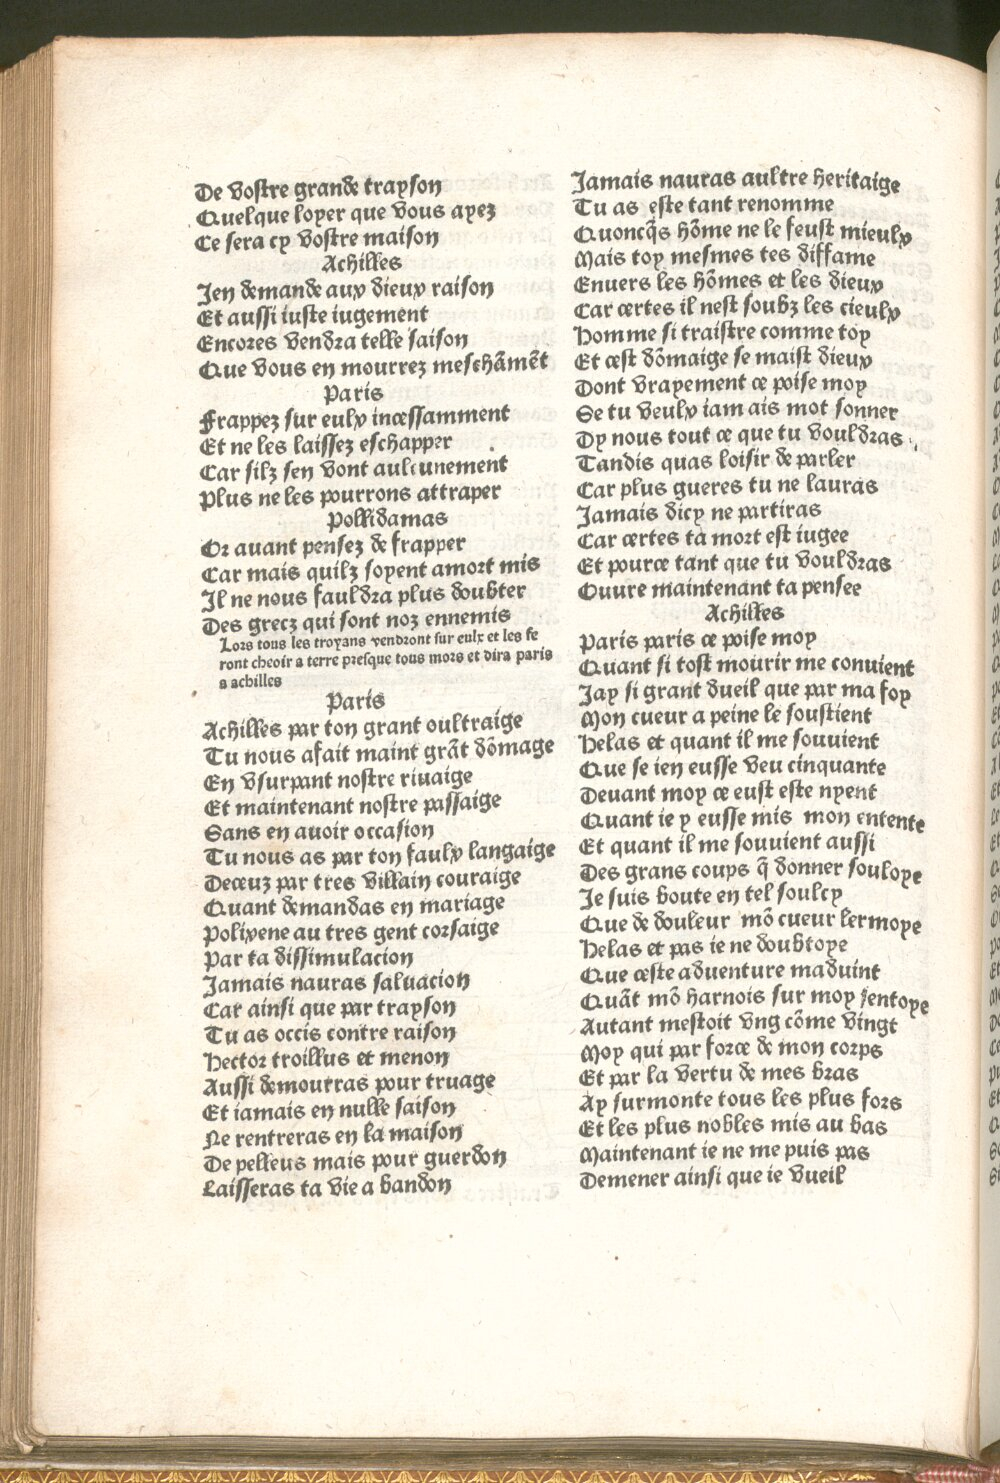 De vostre grande trayson
Quelque loyer que vous ayez
Ce sera cy vostre maison
Achilles
Jen demande aux dieux raison
Et aussi iuste iugement
Encores vendra telle saison
Que vous en mourrez meschãmẽt
Paris
Frappez sur eulx incessamment
Et ne les laissez eschapper
Car silz sen vont aulcunement
Plus ne les pourrons attraper
Pollidamas
Or auant pensez de frapper
Car mais quilz soyent amort mis
Il ne nous fauldra plus doubter
Des grecz qui sont noz ennemis
Lors tous les troyans vendront sur eulx et les fe
ront cheoir a terre presque tous mors et dira paris
a achilles
Paris
Achilles par ton grant oultraige
Tu nous afait maint grãt dõmage
En vsurpant nostre riuaige
Et maintenant nostre passaige
Sans en auoir occasion
Tu nous as par ton faulx langaige
Deceuz par tres villain couraige
Quant demandas en mariage
Polixene au tres gent corsaige
Par ta dissimulacion
Jamais nauras saluacion
Car ainsi que par trayson
Tu as occis contre raison
Hector troillus et menon
Aussi demourras pour truage
Et iamais en nulle saison
Ne rentreras en la maison
De pelleus mais pour guerdon
Laisseras ta vie a bandon
Jamais nauras aultre heritaige
Tu as este tant renomme
Quoncq̃s hõme ne le feust mieulx
Mais toy mesmes tes diffame
Enuers les hõmes et les dieux
Car certes il nest soubz les cieulx
Homme si traistre comme toy
Et cest dõmaige se maist dieux
Dont vrayement ce poise moy
Se tu veulx iam ais mot sonner
Dy nous tout ce que tu vouldras
Tandis quas loisir de parler
Car plus gueres tu ne lauras
Jamais dicy ne partiras
Car certes ta mort est iugee
Et pource tant que tu vouldras
Ouure maintenant ta pensee
Achilles
Paris paris ce poise moy
Quant si tost mourir me conuient
Jay si grant dueil que par ma foy
Mon cueur a peine le soustient
Helas et quant il me souuient
Que se ien eusse veu cinquante
Deuant moy ce eust este nyent
Quant ie y eusse mis mon entente
Et quant il me souuient aussi
Des grans coups q̃ donner souloye
Je suis boute en tel soulcy
Que de douleur mõ cueur lermoye
Helas et pas ie ne doubtoye
Que ceste aduenture maduint
Quãt mõ harnois sur moy sentoye
Autant mestoit vng cõme vingt
Moy qui par force de mon corps
Et par la vertu de mes bras
Ay surmonte tous les plus fors
Et les plus nobles mis au bas
Maintenant ie ne me puis pas
Demener ainsi que ie vueil